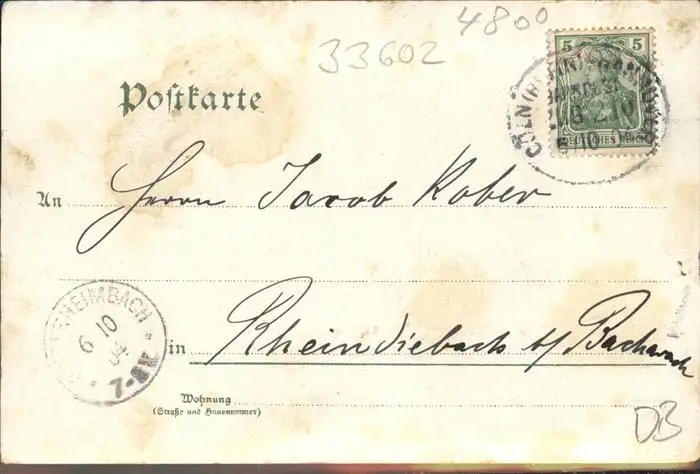 4800
33602
5 5
DEUTSCHES REICH
Postkarte
An Herrn Jacob Kober
HEIMBACH
6 10
04
7-8
in Rheindiebach b/ Bacharach
Wohnung
(Straße und Hausnummer)
DB